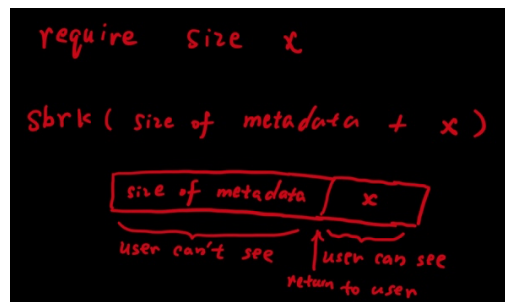 require size x
sbrk( size of metadata + x )
size of metadata x
user can't see user can see
return to user